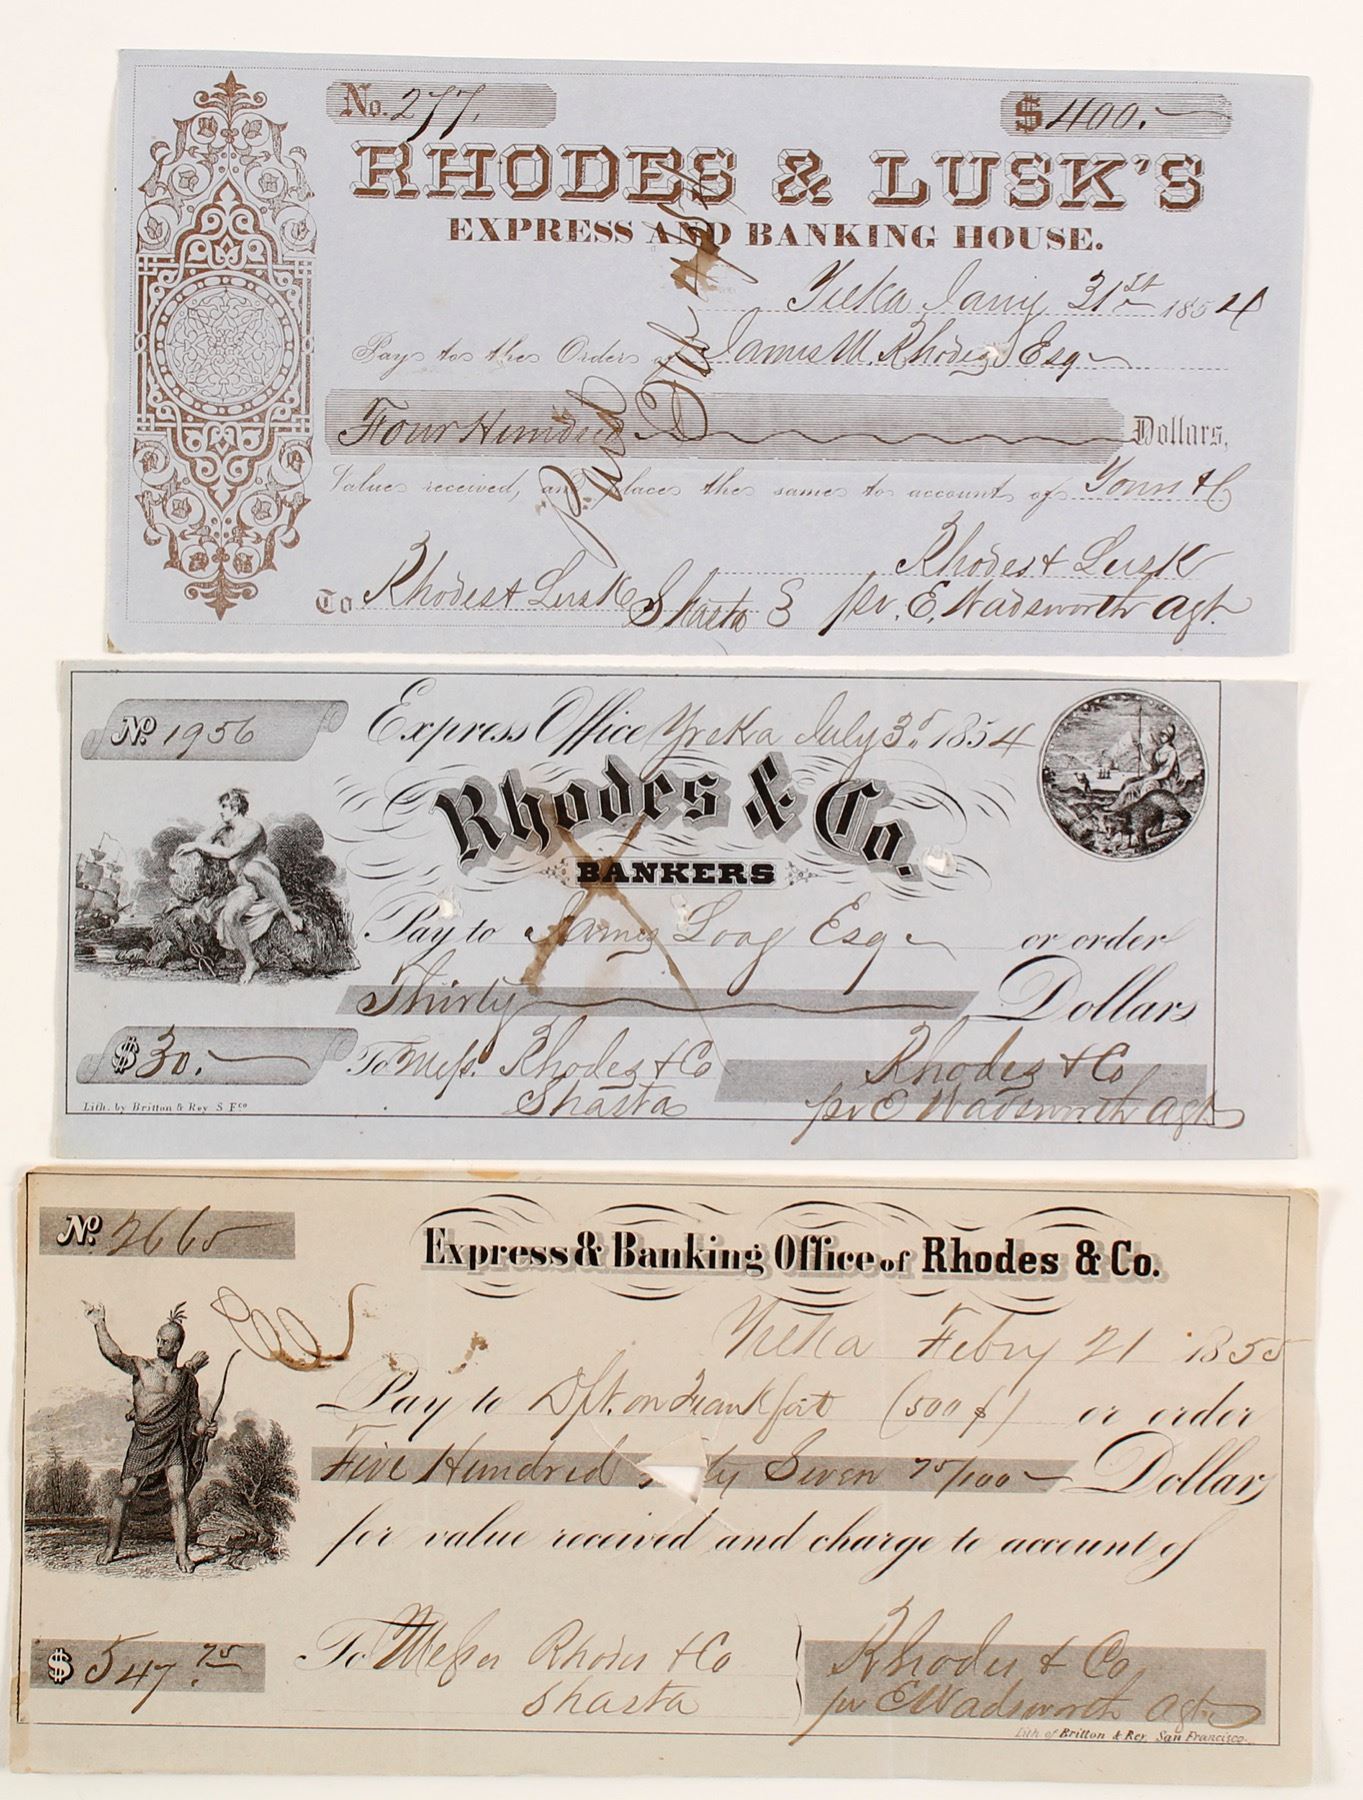 No. 277.
$400.
RHODES & LUSK'S
EXPRESS AND BANKING HOUSE.
Yreka Jany 31st 1854
Pay to the Order of James M. Rhodes Esq
Four Hundred Dollars,
Value received, and place the same to account of Yours &C
Rhodes & Lusk
To Rhodes & Lusk Shasta pr. E. Wadsworth Agt.
Paid
No 1956
Express Office Yreka July 3d 1854
Rhodes & Co.
BANKERS
Pay to James Loag Esq or order
Thirty Dollars
$30. To Mess. Rhodes & Co Rhodes & Co
Shasta pr E Wadsworth Agt
Lith. by Britton & Rey S Fco
No. 2665
Express & Banking Office of Rhodes & Co.
Yreka Febry 21 1855
Pay to Dft. on Frankfort (500 f) or order
Five Hundred Seven 75/100 Dollars
for value received and charge to account of
$547.75 To Messrs Rhodes & Co Rhodes & Co
Shasta pr E Wadsworth Agt
Lith of Britton & Rey, San Francisco.